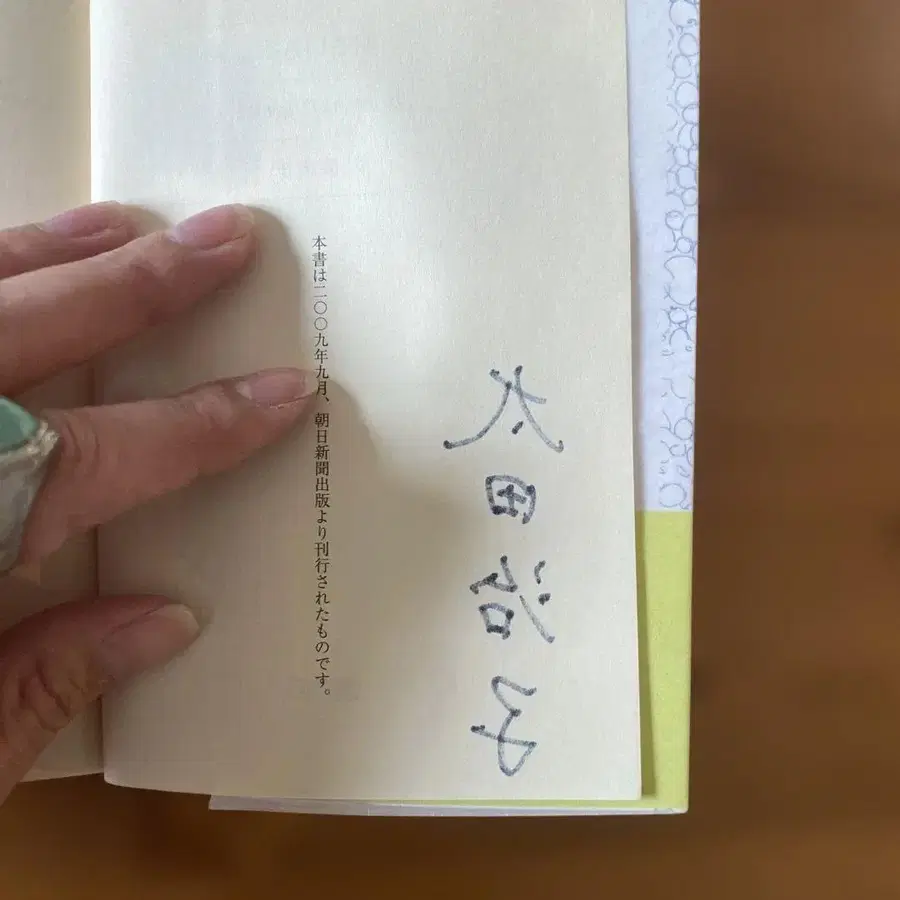 太田治子
本書は二〇〇九年九月、朝日新聞出版より刊行されたものです。